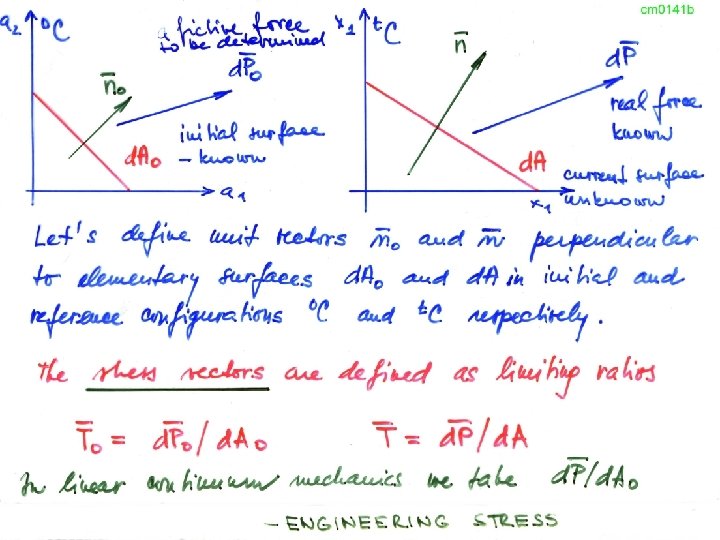 cm0141b
a₂ ⁰C
a fictive force
to be determined
dP̄₀
n̄₀
initial surface
– known
dA₀
a₁
x₁ ᵗC
n̄
dP̄
real force
known
dA
current surface
unknown
x₁
Let's define unit vectors n̄₀ and n̄ perpendicular
to elementary surfaces dA₀ and dA in initial and
reference configurations ⁰C and ᵗC respectively.
The stress vectors are defined as limiting ratios
T̄₀ = dP̄₀/dA₀ T̄ = dP̄/dA
In linear continuum mechanics we take dP̄/dA₀
– ENGINEERING STRESS